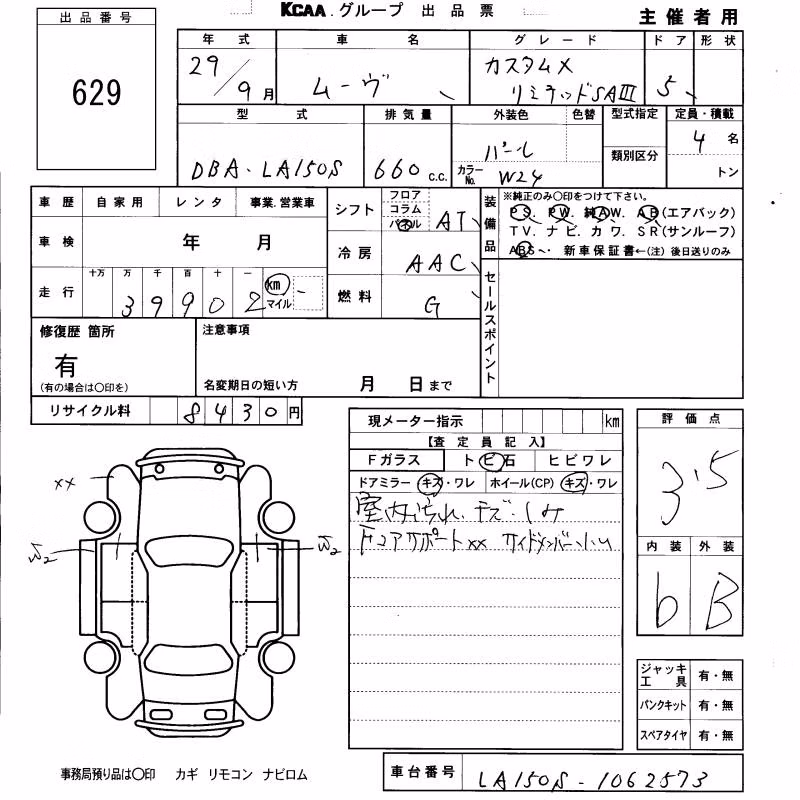 KCAA.グループ 出品票
主催者用
出品番号
629
年式 車名 グレード ドア 形状
29/9月 ムーヴ カスタムX リミテッドSAIII 5
型式 排気量 外装色 色替 型式指定 定員・積載
類別区分
DBA-LA150S 660c.c. パール 4名
カラーNo. W24 トン
車歴 自家用 レンタ 事業.営業車
車検 年 月
走行 十万 万 千 百 十 一
39902 km マイル
シフト フロア コラム パネル AT
冷房 AAC
燃料 G
装備品 ※純正のみ〇印をつけて下さい。
PS. PW. 純AW. AB(エアバック)
TV. ナビ. カワ. SR(サンルーフ)
ABS 新車保証書←(注)後日送りのみ
セールスポイント
修復歴 箇所
有
(有の場合は〇印を)
注意事項
名変期日の短い方 月 日まで
リサイクル料 8430円
現メーター指示 km
【査定員記入】
Fガラス トビ石 ヒビワレ
ドアミラー キズ・ワレ ホイール(CP) キズ・ワレ
室内汚れ.キズ.しみ
Fコアサポートxx サイドメンバー小U
評価点
3.5
内装 外装
b B
xx
W2
W2
ジャッキ工具 有・無
パンクキット 有・無
スペアタイヤ 有・無
事務局預り品は〇印 カギ リモコン ナビロム
車台番号 LA150S-1062573